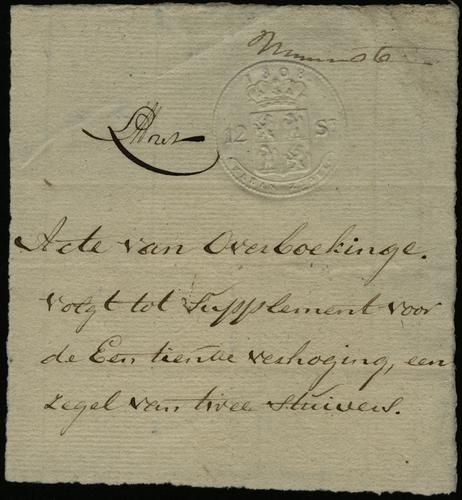 1808
12 St
Acte van Overboekinge.
volgt tot Supplement voor
de Een tiende verhoging, een
zegel van twee stuivers.